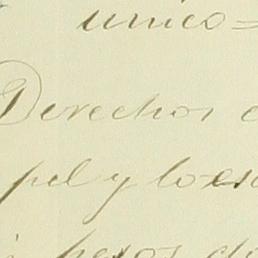 unico=
Derechos
pel y lo es
pesos do